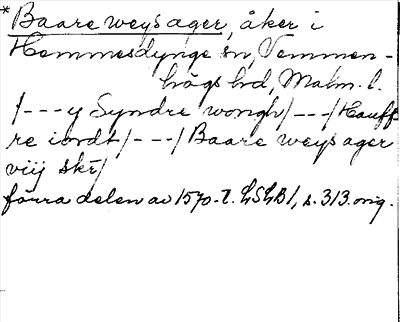 *Baare weys ager, åker i
Hemmesdynge sn, Vemmen-
högs hd, Malm. l.
/---y Syndre wongh/---/Hauff
re iordt/---/Baare weys ager
viij skr/
förra delen av 1570-t. LSLB 1, s. 313. orig.